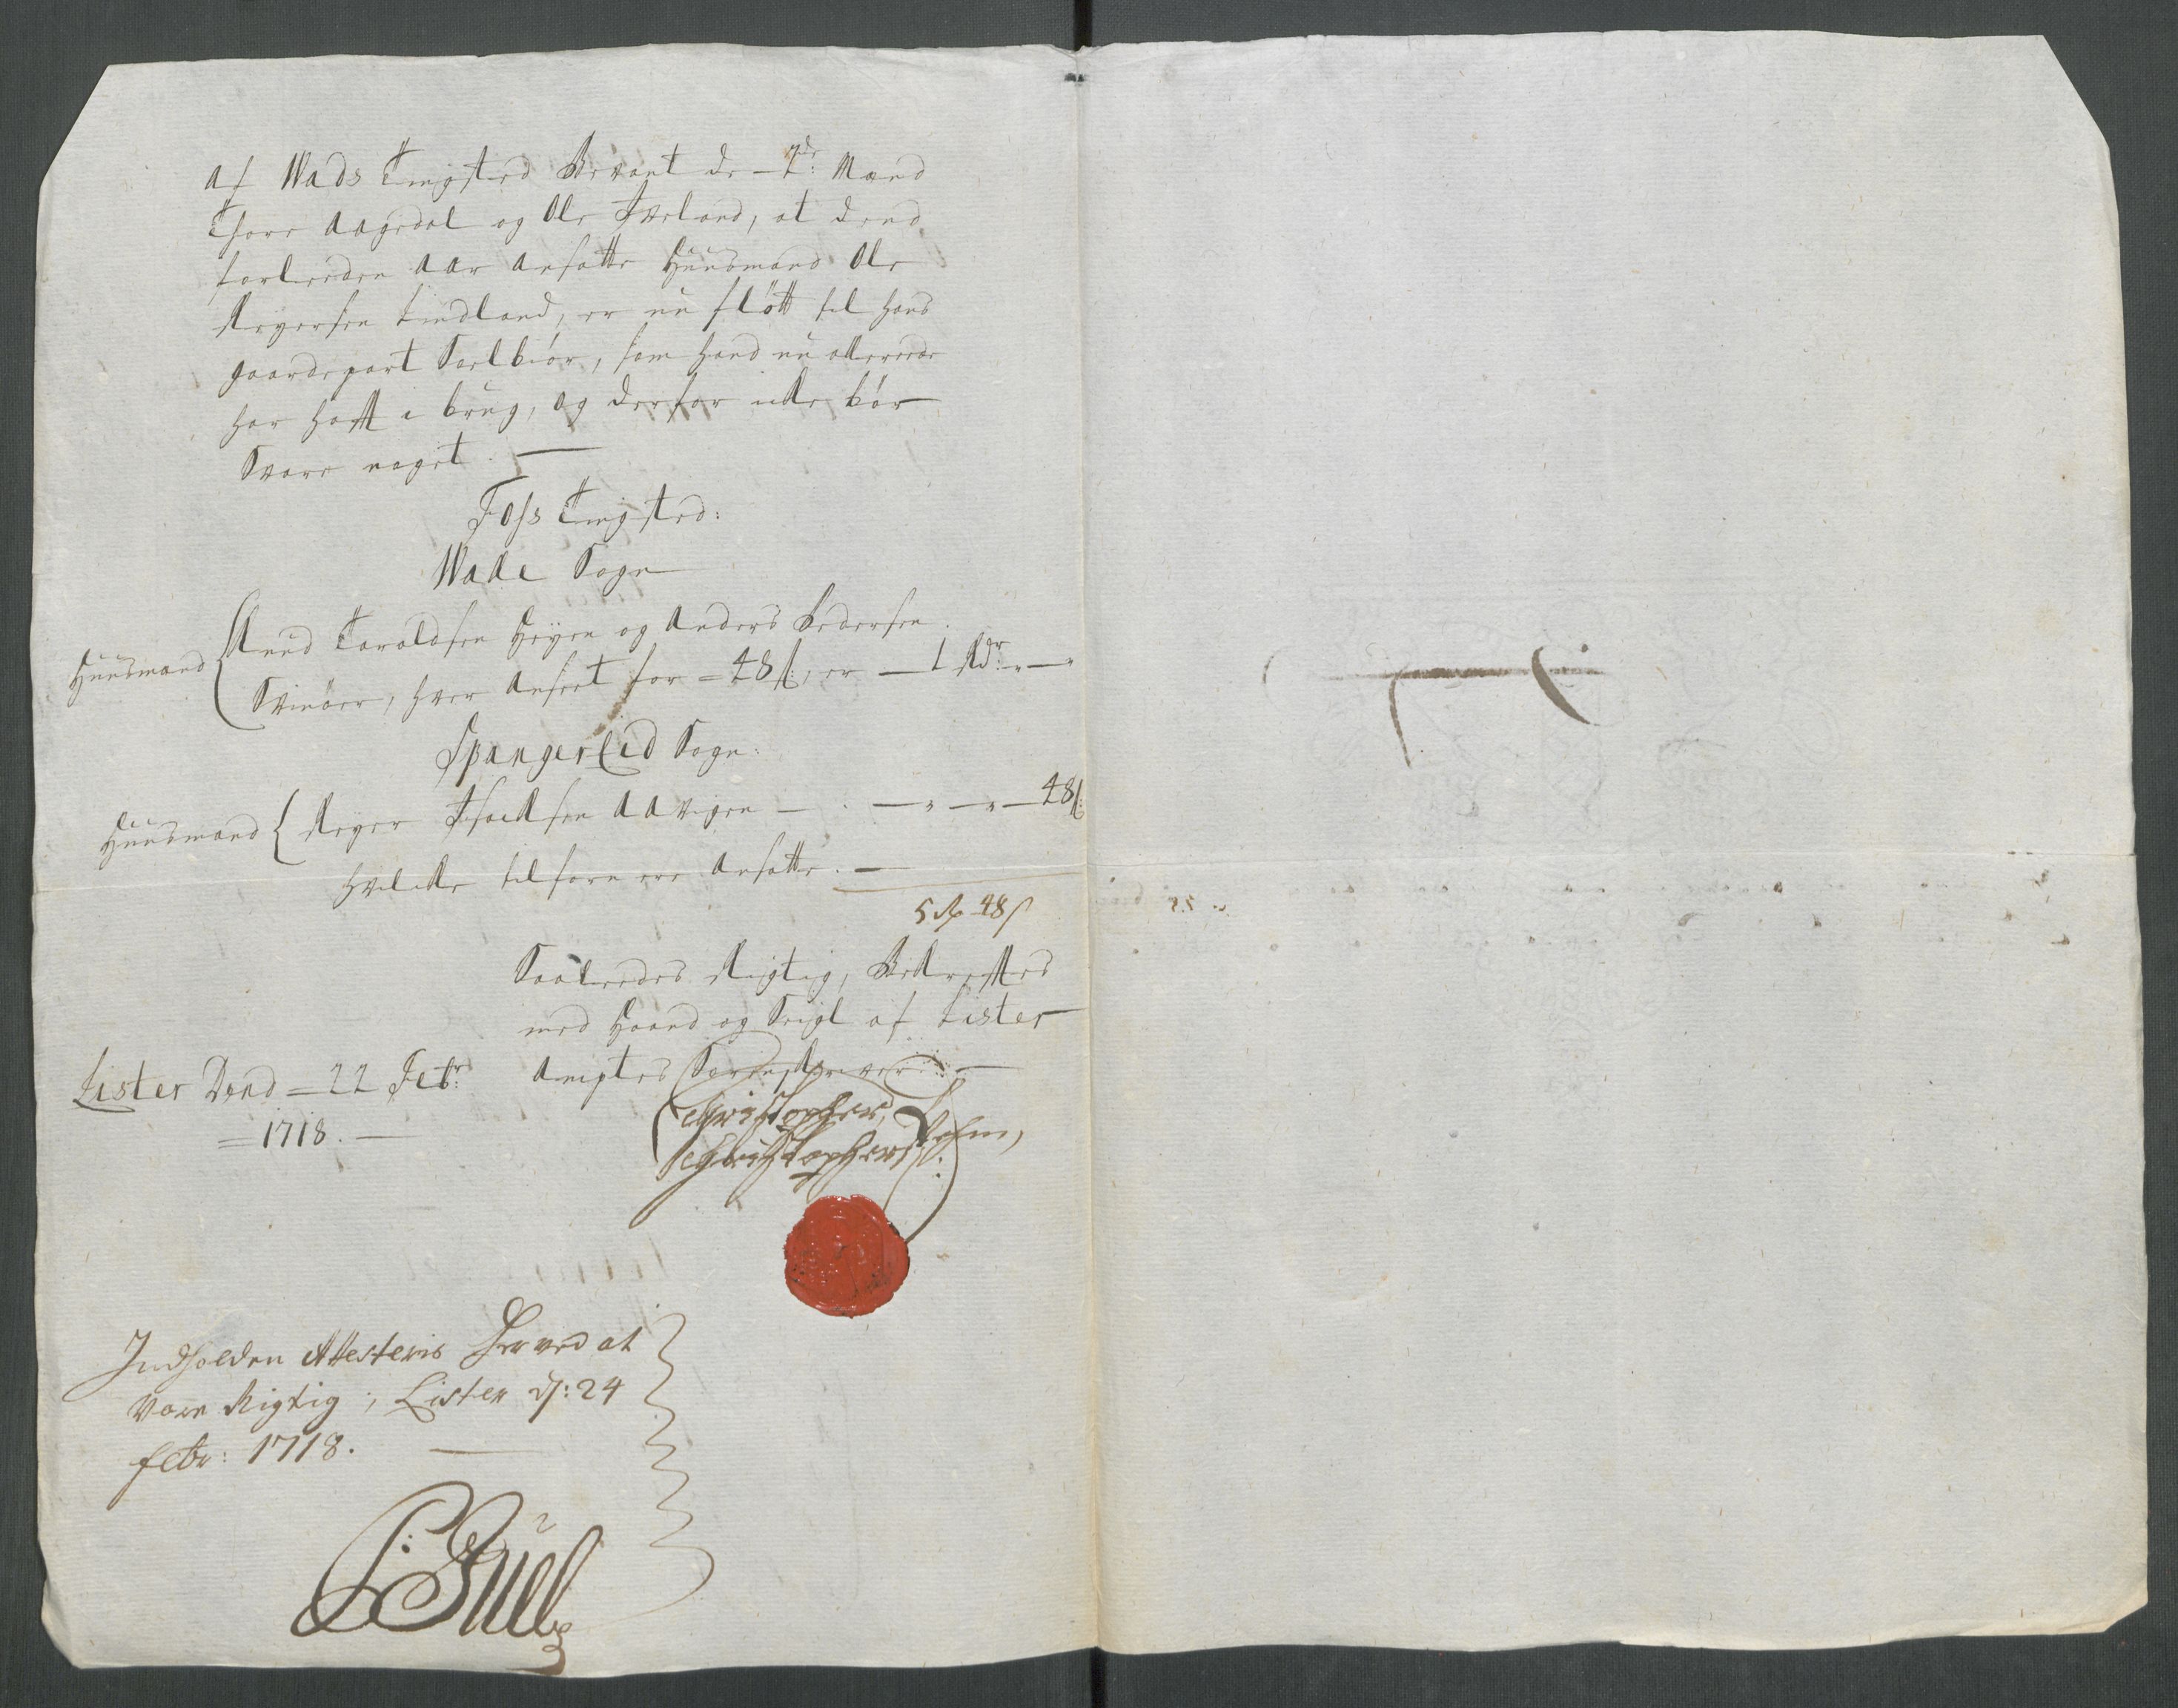 Af Wads Tingsted Bevant de 2de: Mænd
Thore Aagedal og Ole Tveland, at dend
forleeden Aar Ansatte Huusmand Ole
Reyersen Lindland, er nu flött til hans
gaardepart Saelbiör, som hand nu allereede
har hafft i brug, og derfor icke bör
Svare noget.
Foss Tingsted:
Walle Sogn
Huusmænd Knud Taraldsen Heyen og Anders Pedersen
Svinöer, hver Anseet for = 48 s:, er — 1 Rdr: „ — „
Spangereid Sogn:
Huusmand Reyer Isacksen Aavigen — „ — „ — 48 s:
hvilcke tilforn ere Ansatte. —
5 Rd 48 s
Saaleedes Rigtig, Bekrefftes
med Haand og Seigl af Lister
Amptes Sorenskriver: —
Lister Dend = 22 Febr:
= 1718. —
Christopher
Christophers: Lohm,
Indholden Attesteris Herved at
være Rigtig; Lister d: 24
febr: 1718. —
S: Juel